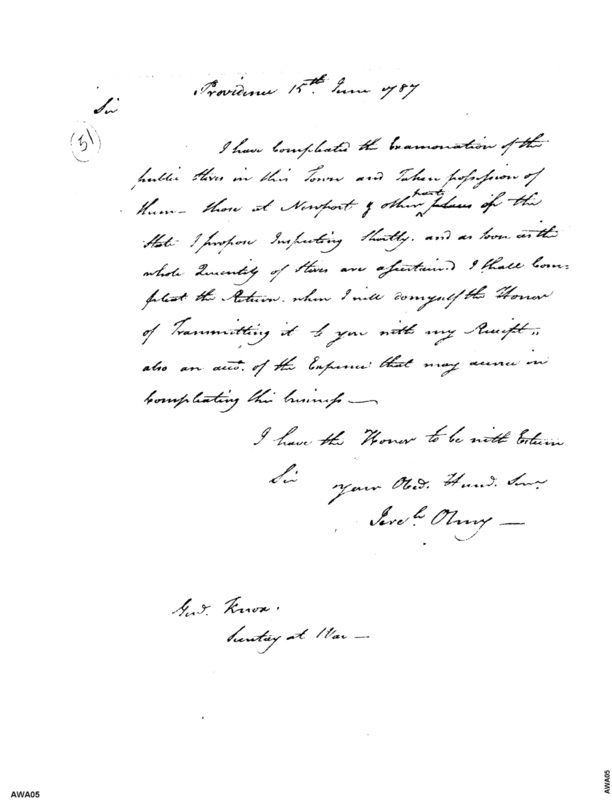 Providence 15th. June 1787
Sir
(51)
I have Compleated the Examonation of the
public Stores in this Town and Taken possession of
them— those at Newport & other parts of the
State I propose Inspecting Shortly. and as soon as the
whole Quantity of Stores are assertained I shall Com=
pleat the Return. when I will do myself the Honor
of Transmitting it to you with my Receipt,,
also an acct. of the Expence that may accrue in
Compleating this business—
I have the Honor to be with Esteem
Sir your Obed. Humb. Servt.
Jereh. Olney —
Genl. Knox.
Secretary at War —
AWA05
AWA05